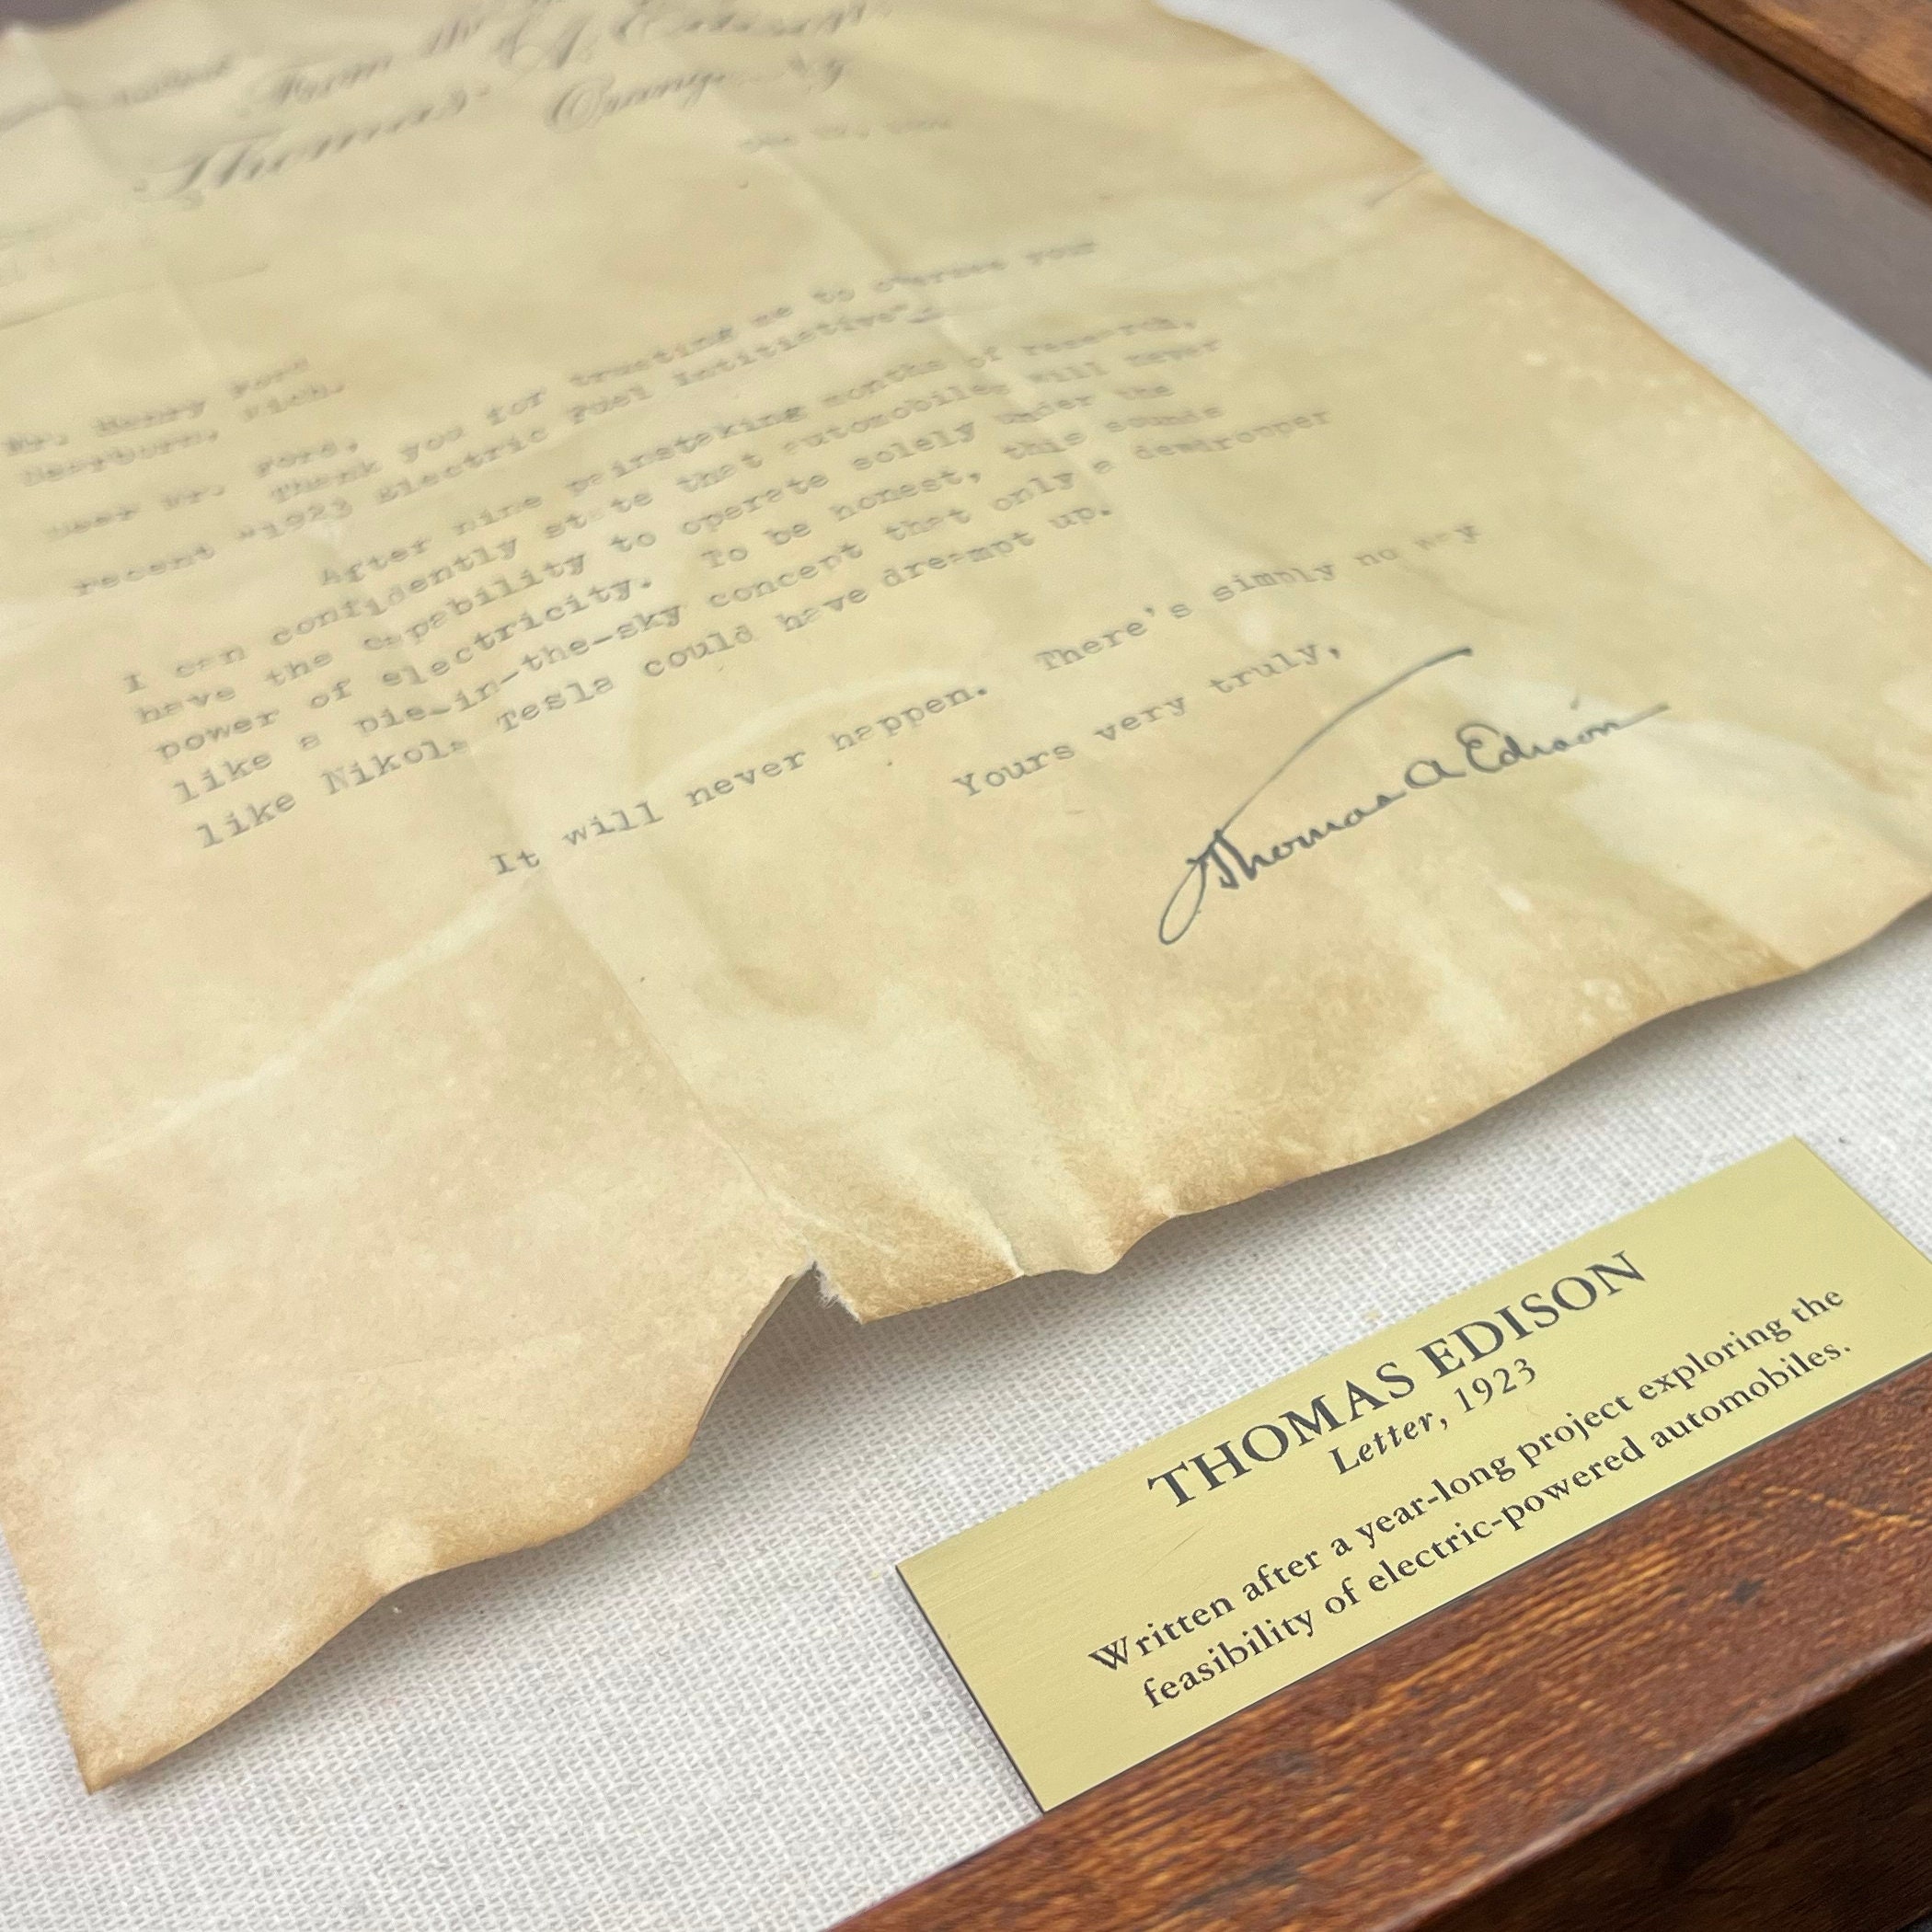 From the
Thomas A. Edison
Orange, N.J.
Mr. Henry Ford
Dearborn, Mich.
Dear Mr. Ford,
Thank you for trusting me to oversee your
recent "1923 Electric Fuel Intitiative".
After nine painstaking months of research,
I can confidently state that automobiles will never
have the capability to operate solely under the
power of electricity. To be honest, this sounds
like a pie-in-the-sky concept that only a
like Nikola Tesla could have dreampt up.
It will never happen. There's simply no way
Yours very truly,
Thomas A Edison
THOMAS EDISON
Letter, 1923
Written after a year-long project exploring the
feasibility of electric-powered automobiles.